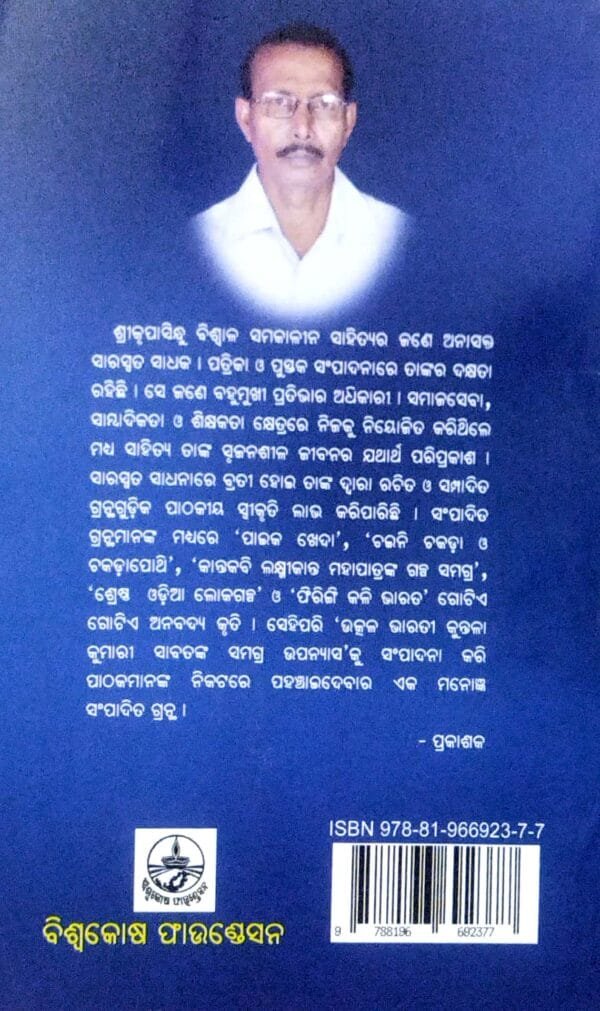 ଶ୍ରୀକୃପାସିନ୍ଧୁ ବିଶ୍ୱାଳ ସମକାଳୀନ ସାହିତ୍ୟର ଜଣେ ଅନାସକ୍ତ
ସାରସ୍ୱତ ସାଧକ । ପତ୍ରିକା ଓ ପୁସ୍ତକ ସଂପାଦନାରେ ତାଙ୍କର ଦକ୍ଷତା
ରହିଛି । ସେ ଜଣେ ବହୁମୁଖୀ ପ୍ରତିଭାର ଅଧିକାରୀ । ସମାଜସେବା,
ସାମ୍ୱାଦିକତା ଓ ଶିକ୍ଷକତା କ୍ଷେତ୍ରରେ ନିଜକୁ ନିୟୋଜିତ କରିଥିଲେ
ମଧ୍ୟ ସାହିତ୍ୟ ତାଙ୍କ ସୃଜନଶୀଳ ଜୀବନର ଯଥାର୍ଥ ପରିପ୍ରକାଶ ।
ସାରସ୍ୱତ ସାଧନାରେ ବ୍ରତୀ ହୋଇ ତାଙ୍କ ଦ୍ୱାରା ରଚିତ ଓ ସମ୍ପାଦିତ
ଗ୍ରନ୍ଥଗୁଡ଼ିକ ପାଠକୀୟ ସ୍ୱୀକୃତି ଲାଭ କରିପାରିଛି । ସଂପାଦିତ
ଗ୍ରନ୍ଥମାନଙ୍କ ମଧ୍ୟରେ ‘ପାଇକ ଖେଦା’, ‘ଚଇନି ଚକଡ଼ା ଓ
ଚକଡ଼ାପୋଥି’, ‘କାନ୍ତକବି ଲକ୍ଷ୍ମୀକାନ୍ତ ମହାପାତ୍ରଙ୍କ ଗଳ୍ପ ସମଗ୍ର’,
‘ଶ୍ରେଷ୍ଠ ଓଡ଼ିଆ ଲୋକଗଳ୍ପ’ ଓ ‘ଫିରିଙ୍ଗି କଳି ଭାରତ’ ଗୋଟିଏ
ଗୋଟିଏ ଅନବଦ୍ୟ କୃତି । ସେହିପରି ‘ଉତ୍କଳ ଭାରତୀ କୁନ୍ତଳା
କୁମାରୀ ସାବତଙ୍କ ସମଗ୍ର ଉପନ୍ୟାସ’କୁ ସଂପାଦନା କରି
ପାଠକମାନଙ୍କ ନିକଟରେ ପହଞ୍ଚାଇଦେବାର ଏକ ମନୋଜ୍ଞ
ସଂପାଦିତ ଗ୍ରନ୍ଥ ।
- ପ୍ରକାଶକ
ISBN 978-81-966923-7-7
9 788196 692377
ବିଶ୍ୱକୋଷ ଫାଉଣ୍ଡେସନ
ବିଶ୍ୱକୋଷ ଫାଉଣ୍ଡେସନ